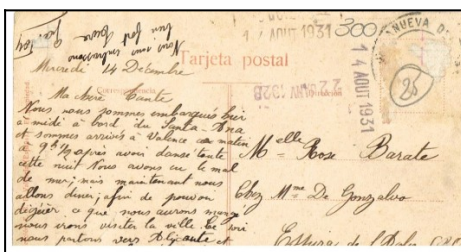 Nous vous embrassons
bien fort
1 4 AOUT 1931
300
NUEVA D
Tarjeta postal
1 4 AOUT 1931
22 JANV 1928
Mercredi 14 Décembre
Ma chère Tante
Nous nous sommes embarqués hier
à midi à bord du Santa-Ana
et sommes arrivés à Valence ce matin
à 9h après avoir dansé toute
cette nuit Nous avons eu le mal
de mer, mais maintenant nous
allons diner, afin de pouvoir
digérer ce que nous aurons mangé
nous irons visiter la ville. Ce soir
nous partons vers Alicante et
Melle Rose Barate
Chez Mme De Gonzalvo